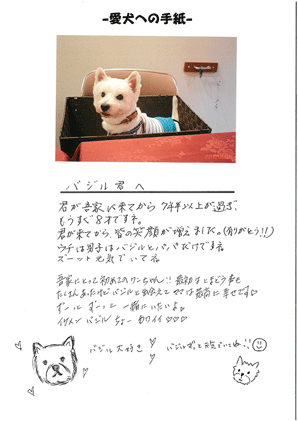 -愛犬への手紙-
バジル君へ
君が吾家に来てから7年半以上が過ぎ、
もうすぐ8才ですネ。
君が来てから、皆の笑顔が増えました。(ありがとう!!)
ウチは男子はバジルとパパだけですネ
ズーット元気でいてネ
吾家にとって初めてのワンちゃん!! 最初はとまどう事も
たくさんあったけどバジルと出会えて ママは最高に幸せです♡
ずーっと ずーっと 一緒にいたいよ。
イケメン バジル ちょー カワイイ♡♡♡
バジル大好き
バジルずっと元気でいてね!!